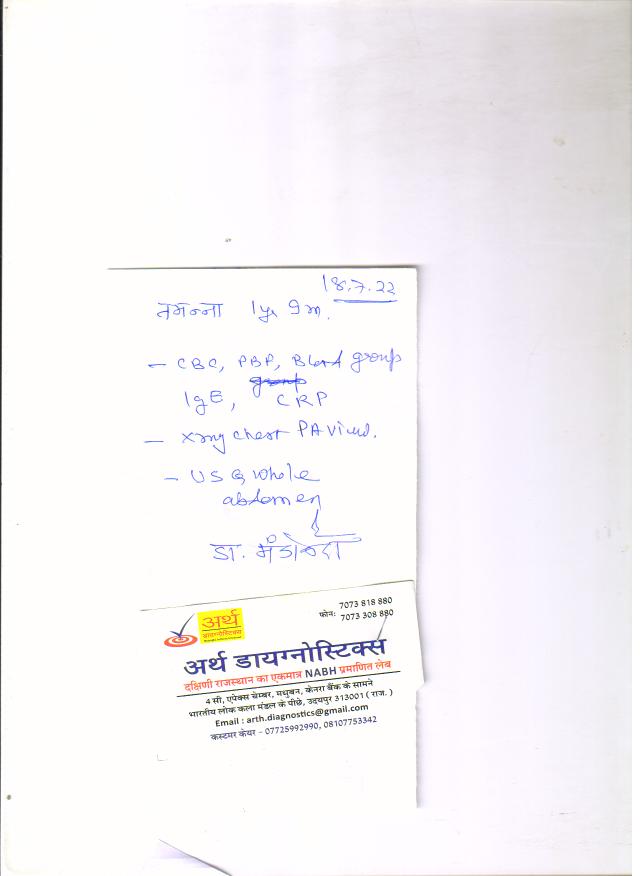 18.7.22
तमन्ना 1 yr 9 m.
- CBC, PBP, Blood group
group
IgE, CRP
- xray chest PA view.
- USG whole
abdomen
डा.
अर्थ
डायग्नोस्टिक्स
फोन: 7073 818 880
7073 308 880
अर्थ डायग्नोस्टिक्स
दक्षिणी राजस्थान का एकमात्र NABH प्रमाणित लेब
4 सी, एपेक्स चेम्बर, मधुबन, केनरा बैंक के सामने
भारतीय लोक कला मंडल के पीछे, उदयपुर 313001 ( राज. )
Email : arth.diagnostics@gmail.com
कस्टमर केयर - 07725992990, 08107753342